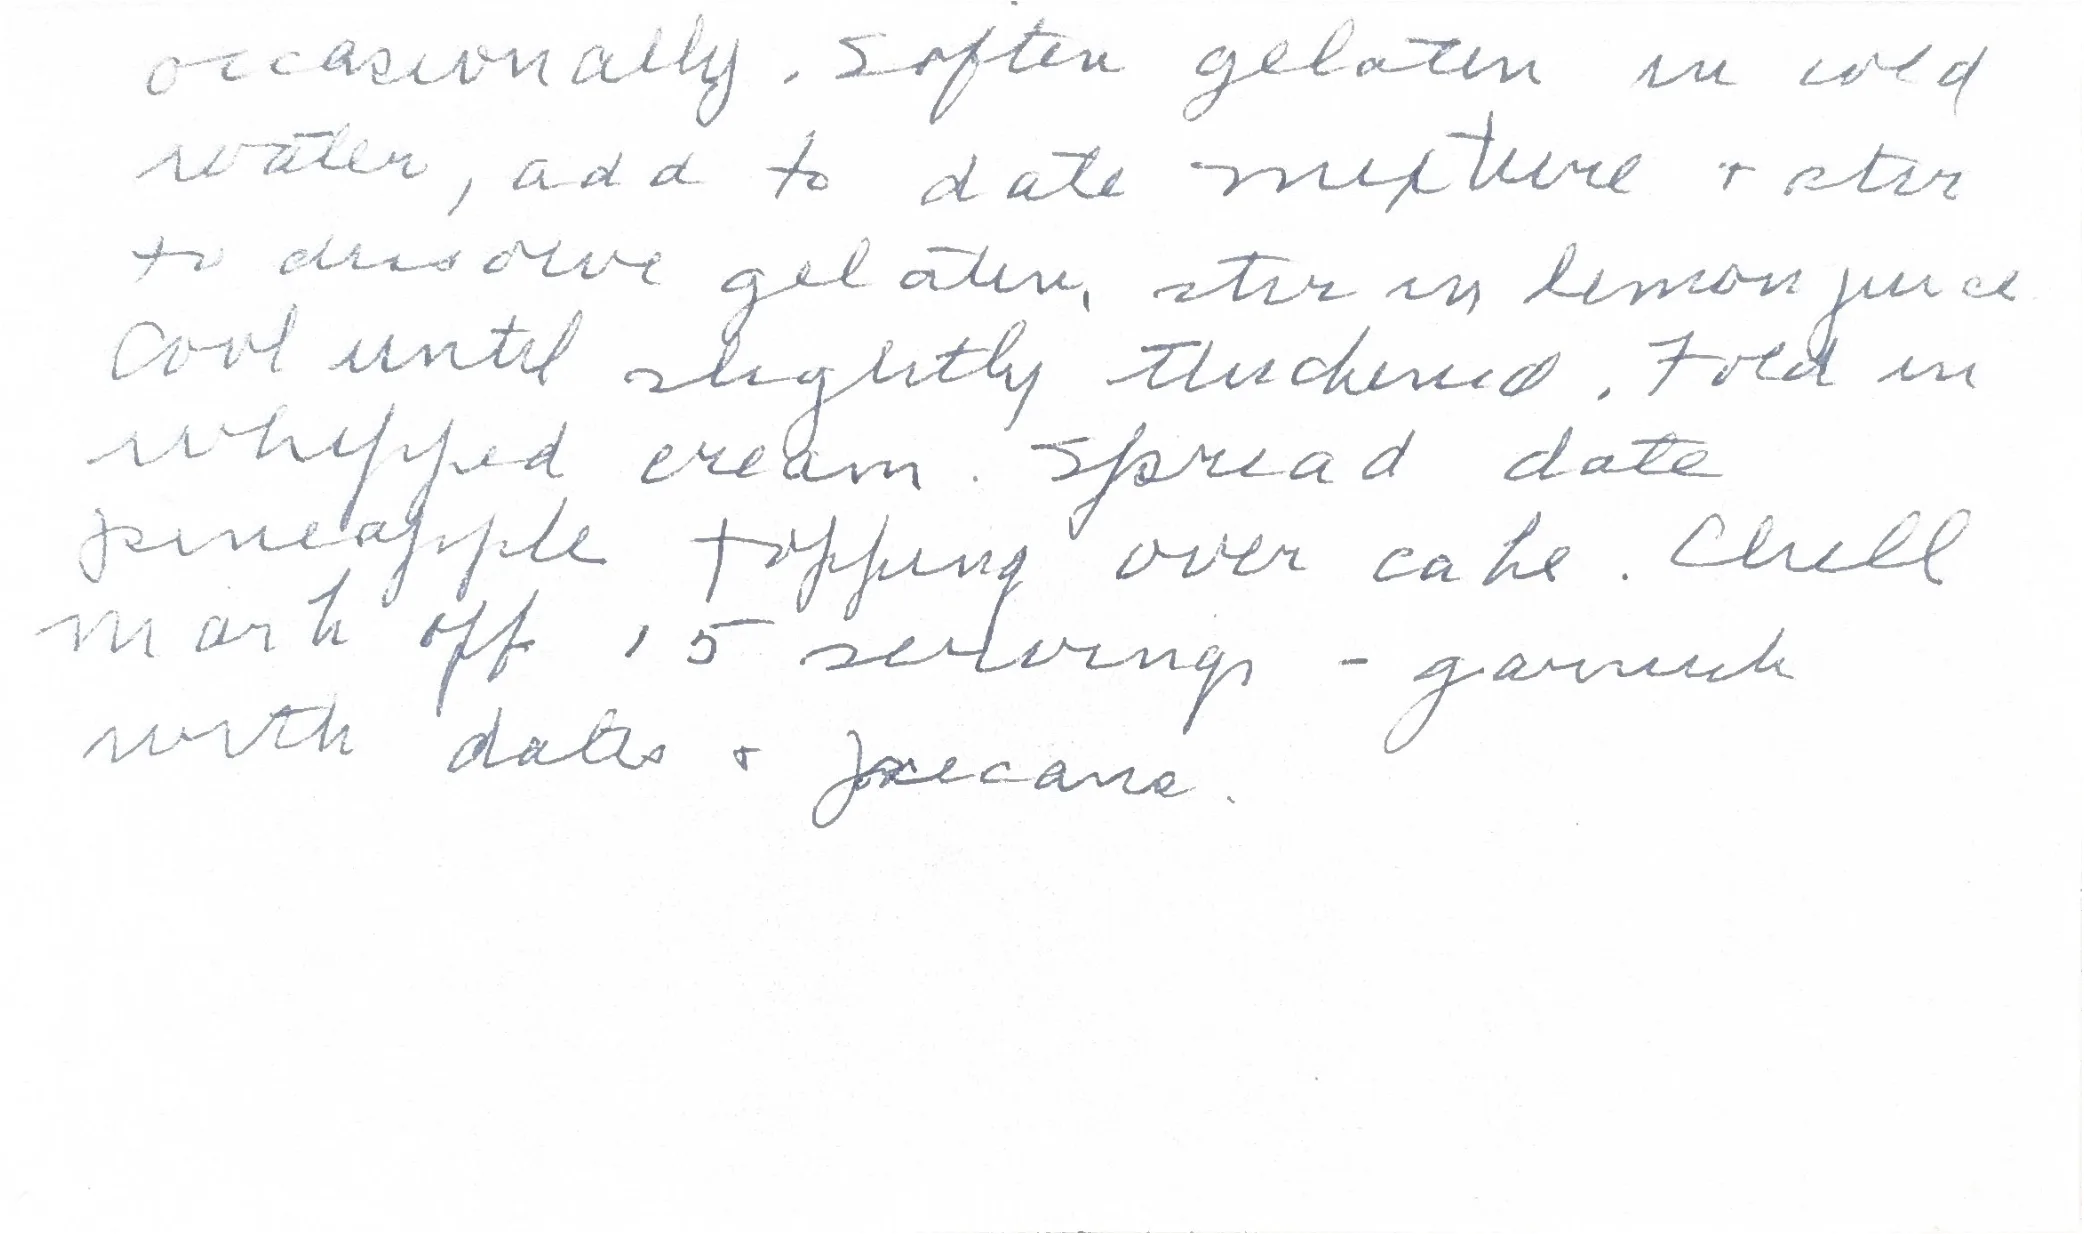 occasionally. Soften gelatin in cold
water, add to date mixture + stir
to dissolve gelatin, stir in lemon juice
Cool until slightly thickened. Fold in
whipped cream. Spread date
pineapple topping over cake. Chill
Mark off 15 servings - garnish
with dates + pecans.